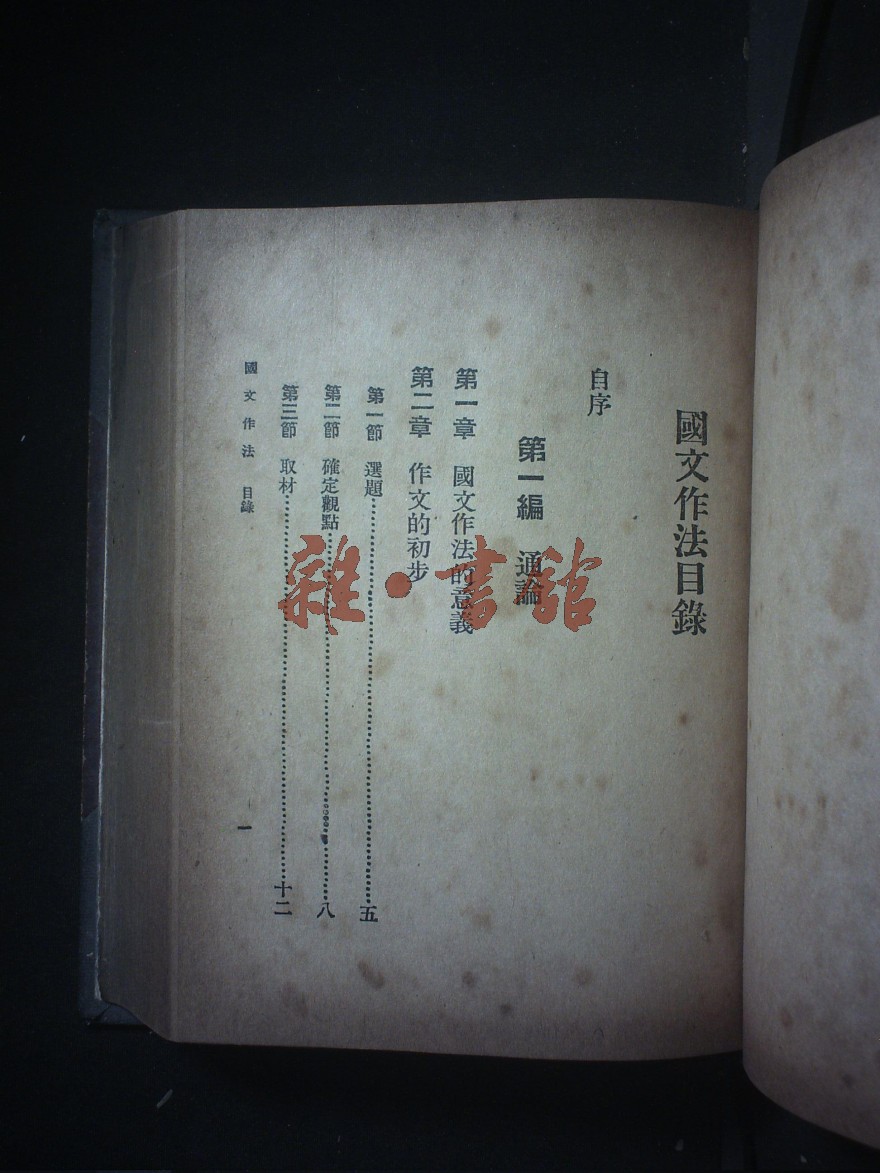 國文作法目錄
自序
第一編 通論
第一章 國文作法的意義
第二章 作文的初步
第一節 選題……五
第二節 確定觀點……八
第三節 取材……十二
國文作法 目錄
一
雜·書舘